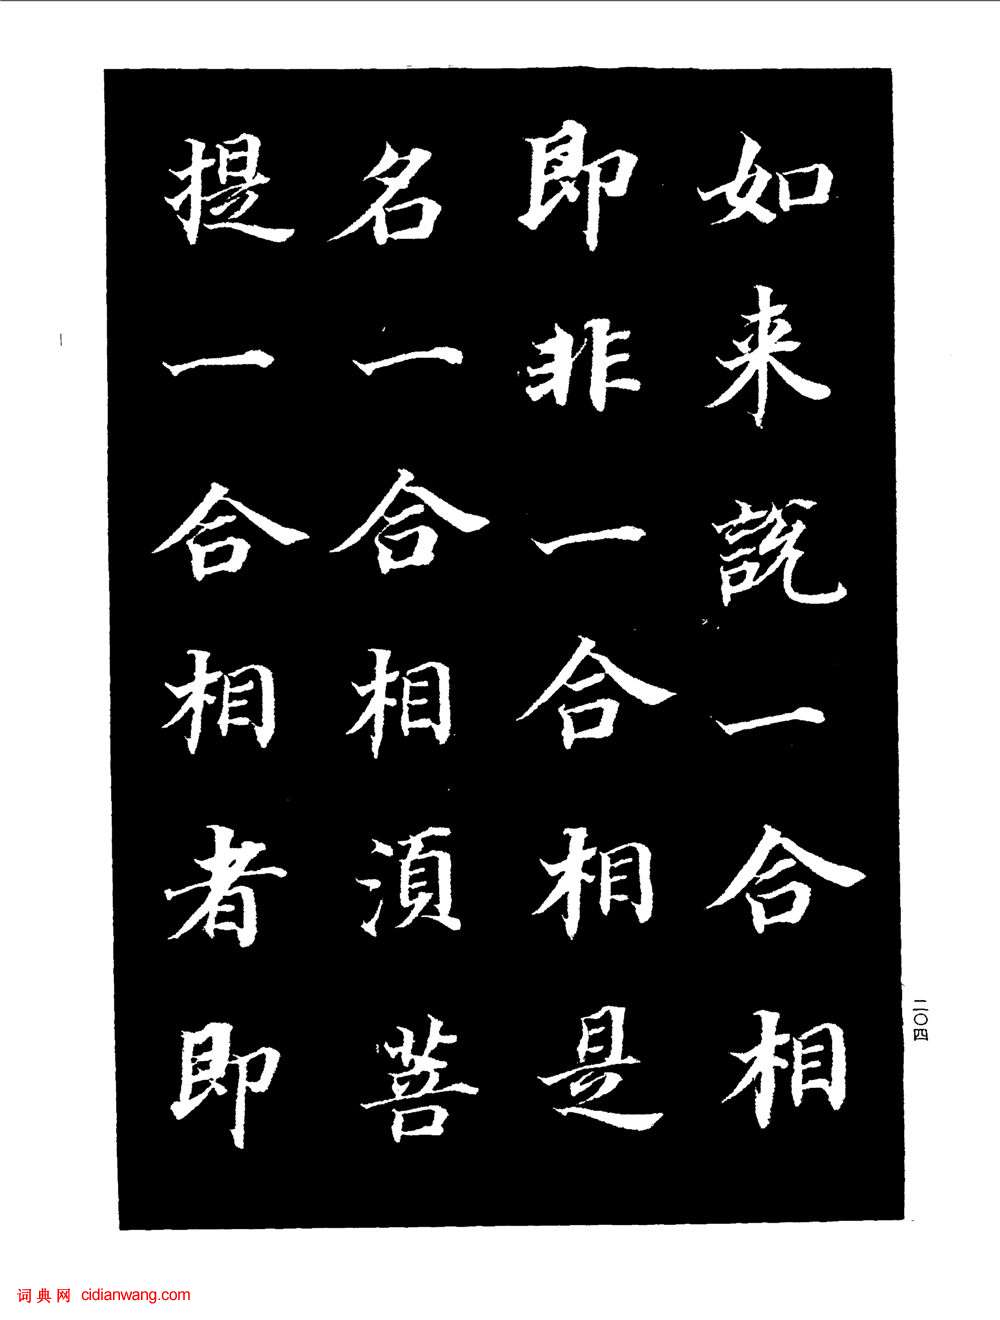 如来說一合相
即非一合相是
名一合相湏菩
提一合相者即
二〇四
词典网 cidianwang.com